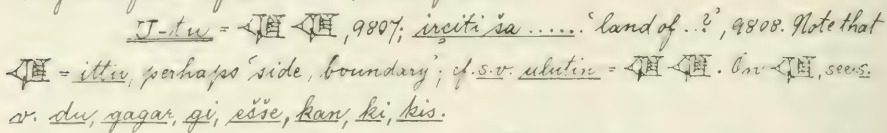 U-tu = 𒆠 𒆠, 9807; irçiti ša ...... 'land of ..?', 9808. Note that
𒆠 = ittu, perhaps 'side, boundary'; cf. s.v. ulutin = 𒆠 𒆠. On 𒆠, see s.
v. du, gagar, gi, ešše, kan, ki, kis.